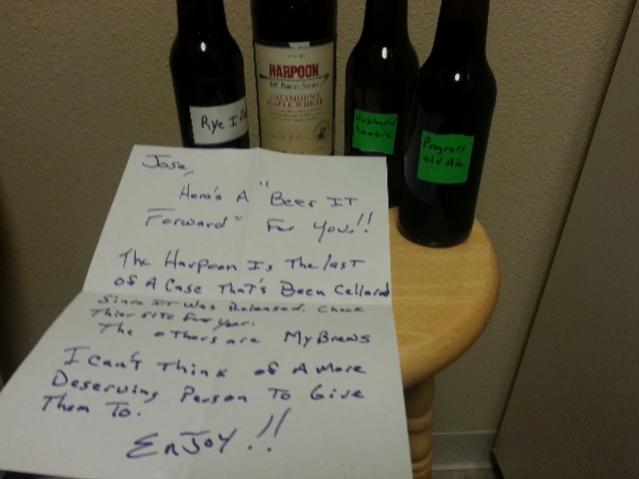 Rye IPA
HARPOON
100 Barrel Series
CATAMOUNT
MAPLE WHEAT
Unblended
Lambic
Progress
old Ale
Jose,
Here's A "Beer IT
Forward" For You!!
The Harpoon Is The last
of A Case That's Been Cellared
Since IT Was Released. Check
Thier site For year.
The others are My Brews
I Can't Think of A More
Deserving Person To Give
Them To.
EnJoy!!